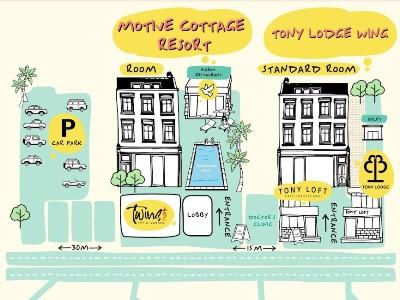 MOTIVE COTTAGE
RESORT
TONY LODGE WING
ROOM
STANDARD ROOM
P
CAR PARK
TONY LODGE
TONY LOFT
TONY LOFT
LOBBY
ENTRANCE
DOCTOR'S
CLINIC
ENTRANCE
30M
15M